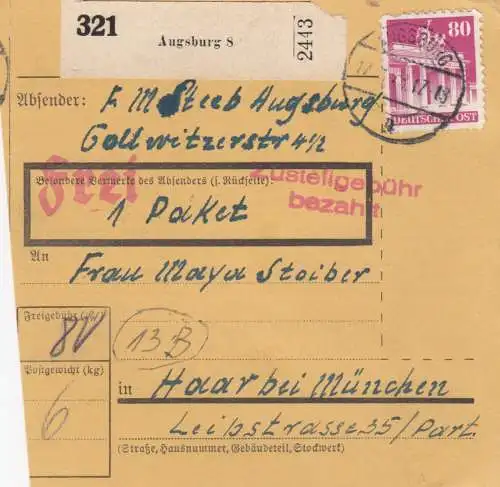 321
Augsburg 8
2443
80
DEUTSCHE POST
AUGSBURG
Absender: F M Steeb Augsburg
Gollwitzerstr 4½
Frei
Besondere Vermerke des Absenders (s. Rückseite):
Zustellgebühr
bezahlt
1 Paket
An
Frau Maya Stoiber
Freigebühr
80
13B
Postgewicht (kg)
6
in
Haar bei München
Leibstrasse 35/Part.
(Straße, Hausnummer, Gebäudeteil, Stockwerk)